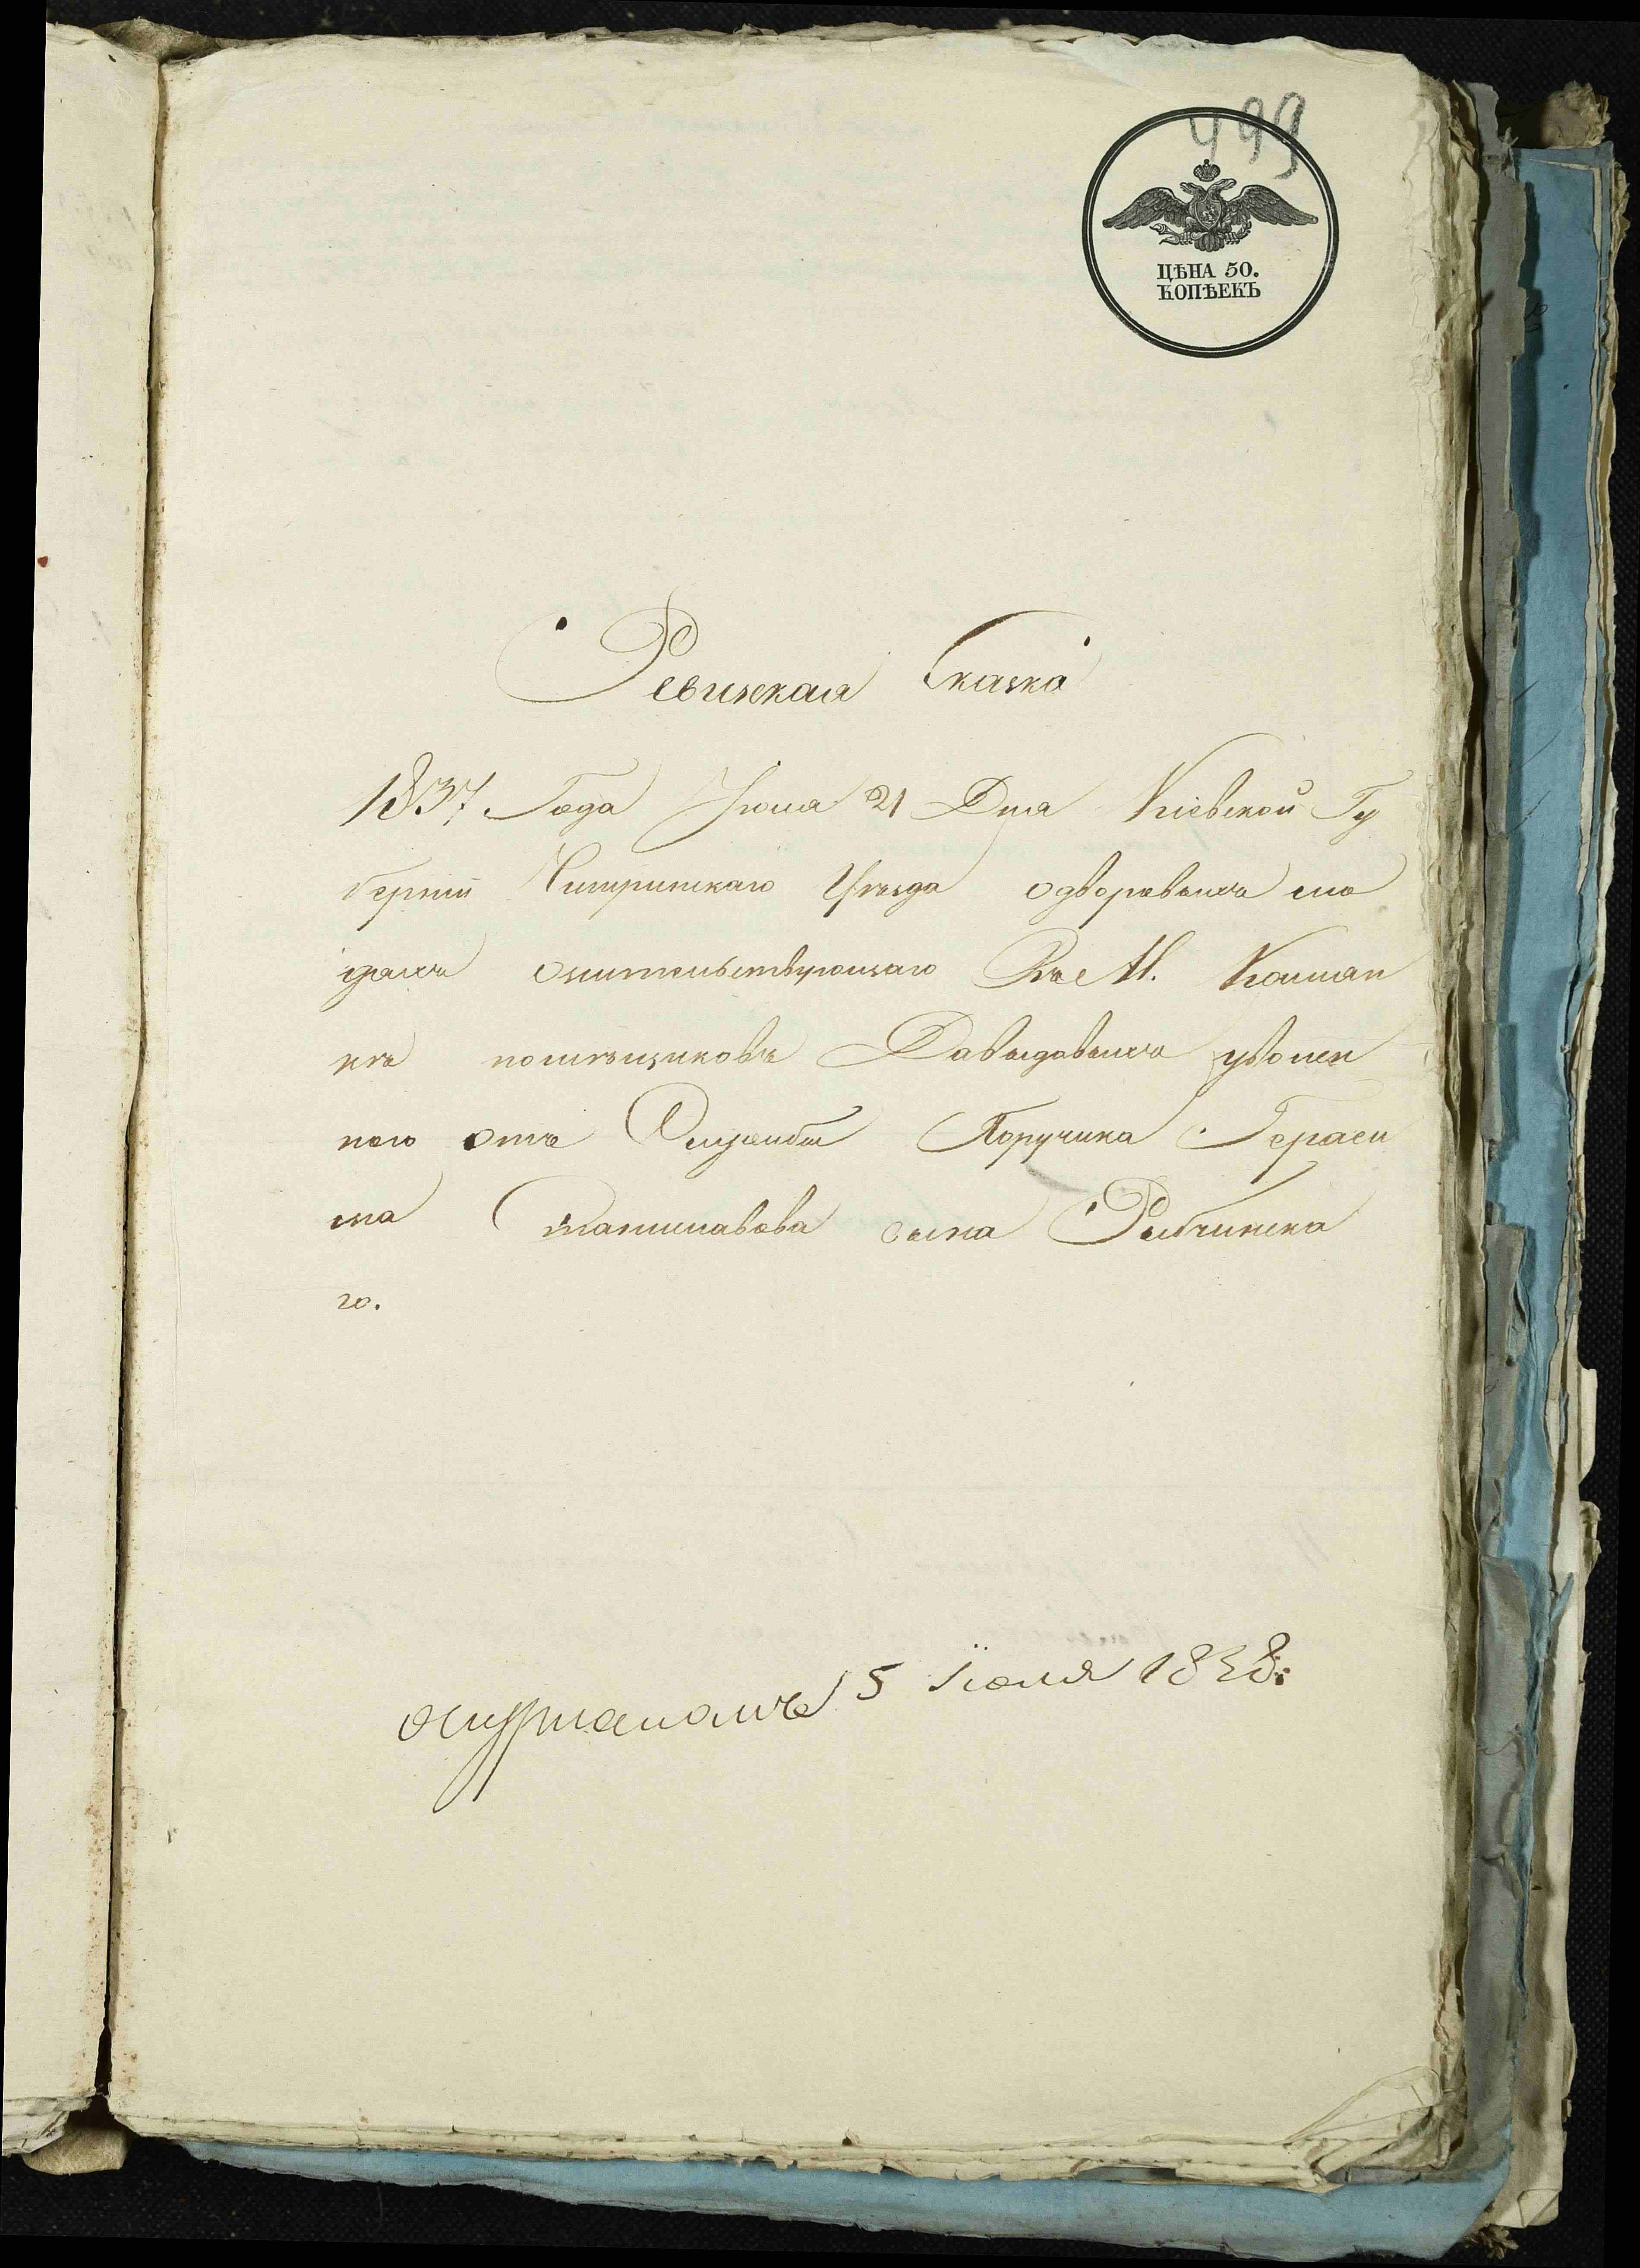 499
ЦѢНА 50.
КОПѢЕКЪ
Ревизская Сказка
1837 Года Июля 21 Дня Кіевской Гу
берніи Чигиринскаго Уѣзда одворовыхъ лю
дяхъ жительствующаго Въ М. Каман
къ помѣщиковъ Давыдовыхъ уволен
ного отъ Службы Поручика Гераси
ма Станиславова сына Рыбчинска
го.
5 Іюля 1838: